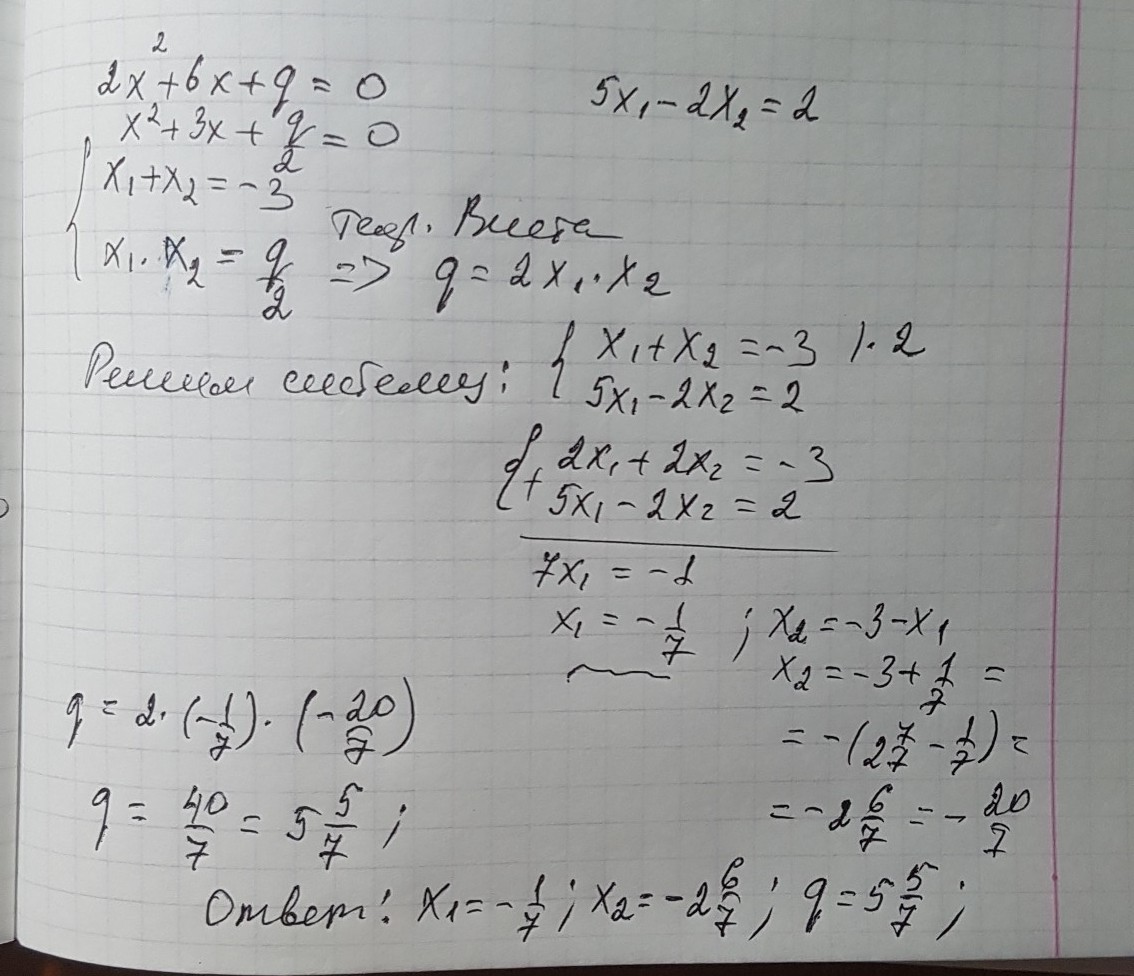 2x²+6x+q = 0    5x₁-2x₂=2
x²+3x+q/2=0
{x₁+x₂=-3
теор. Виета
x₁·x₂=q/2 => q=2x₁·x₂
Решим систему: {x₁+x₂=-3 |·2
5x₁-2x₂=2
{+ 2x₁+2x₂=-3
5x₁-2x₂=2
7x₁=-1
x₁=-1/7 ; x₂=-3-x₁
x₂=-3+1/7=
q=2·(-1/7)·(-20/7)
=-(2 7/7-1/7)=
q=40/7=5 5/7;
=-2 6/7=-20/7
Ответ: x₁=-1/7; x₂=-2 6/7; q=5 5/7;